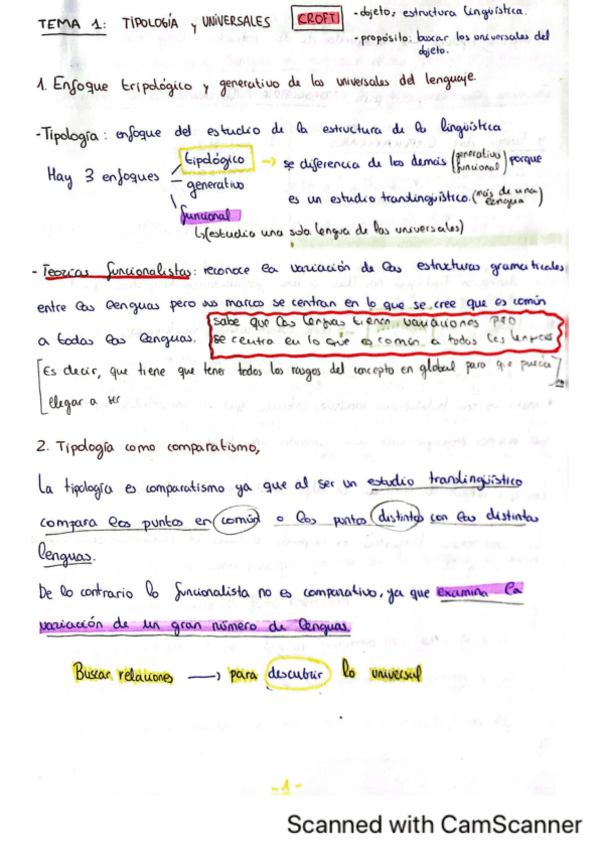 TEMA 1: TIPOLOGÍA y UNIVERSALES
CROFT
-objeto: estructura lingüística.
-propósito: buscar los universales del
objeto.
1. Enfoque tripológico y generativo de los universales del lenguaje.
-Tipología: enfoque del estudio de la estructura de la lingüística
Hay 3 enfoques
tipológico → se diferencia de los demás (generativo funcional) porque
generativo
es un estudio translingüístico. (más de una lengua)
funcional
↳(estudia una sola lengua de las universales)
- Teorías funcionalistas: reconoce la variación de las estructuras gramaticales
entre las lenguas pero sus marcos se centran en lo que se cree que es común
a todas las lenguas.
sabe que las lenguas tienen variaciones pero
se centra en lo que es común a todas las lenguas
[Es decir, que tiene que tener todos los rasgos del concepto en global para que pueda
llegar a ser
2. Tipología como comparatismo,
La tipología es comparatismo ya que al ser un estudio translingüístico
compara los puntos en común o los puntos distintos con las distintas
lenguas.
De lo contrario lo funcionalista no es comparativo, ya que examina la
variación de un gran número de lenguas.
Buscar relaciones → para descubrir lo universal
-1-
Scanned with CamScanner